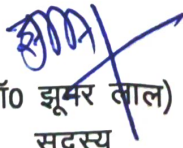 ॉ0 झूमर लाल)
सदस्य